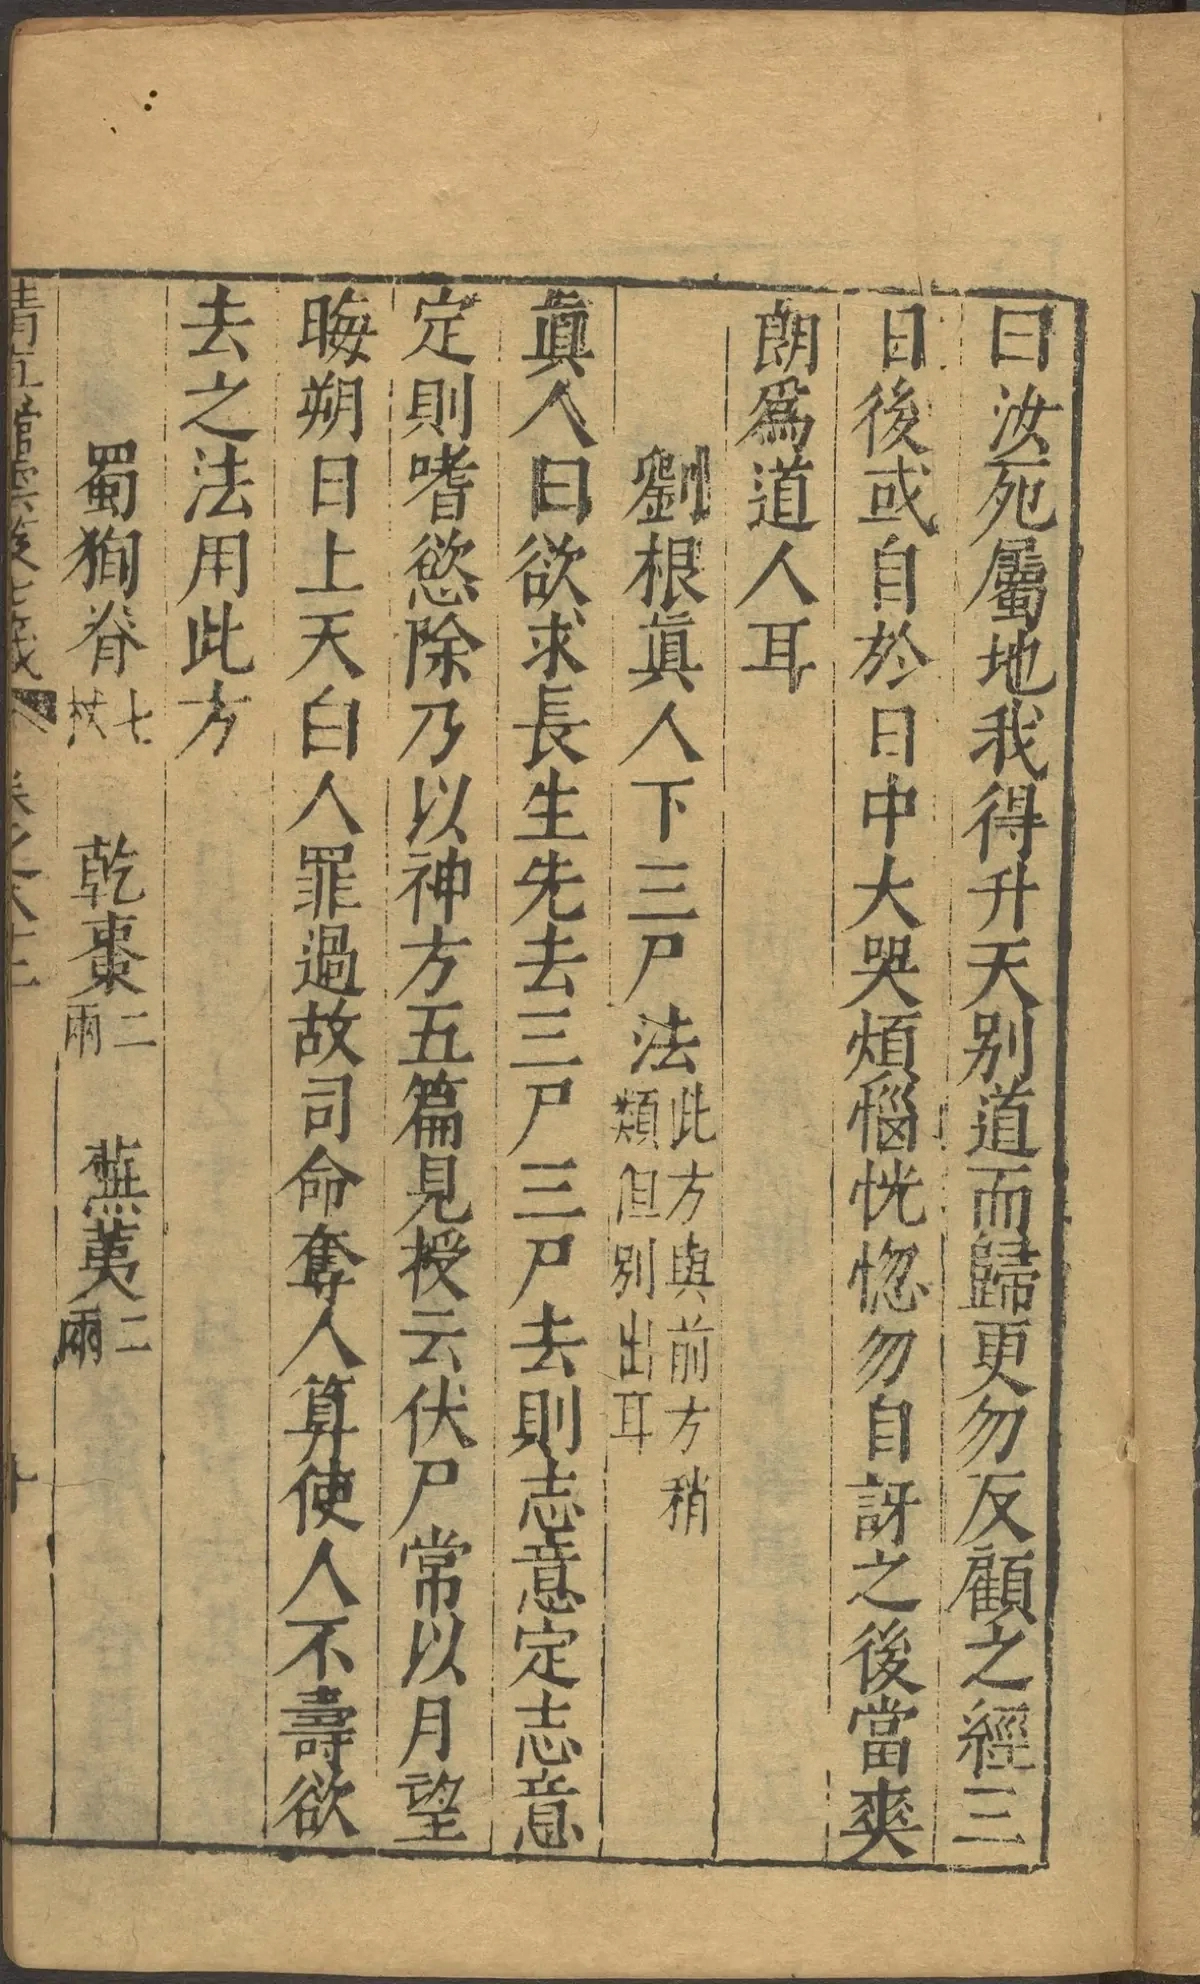 曰汝死屬地我得升天别道而歸更勿反顧之經三
日後或自於日中大哭煩惱恍惚勿自訝之後當爽
朗爲道人耳
劉根眞人下三尸法此方與前方稍類但别出耳
眞人曰欲求長生先去三尸三尸去則志意定志意
定則嗜慾除乃以神方五篇見授云伏尸常以月望
晦朔日上天白人罪過故司命奪人算使人不壽欲
去之法用此方
蜀狗脊七枚 乾棗二兩 蕪荑二兩
清眞館雲笈七籖 卷之八十二 十